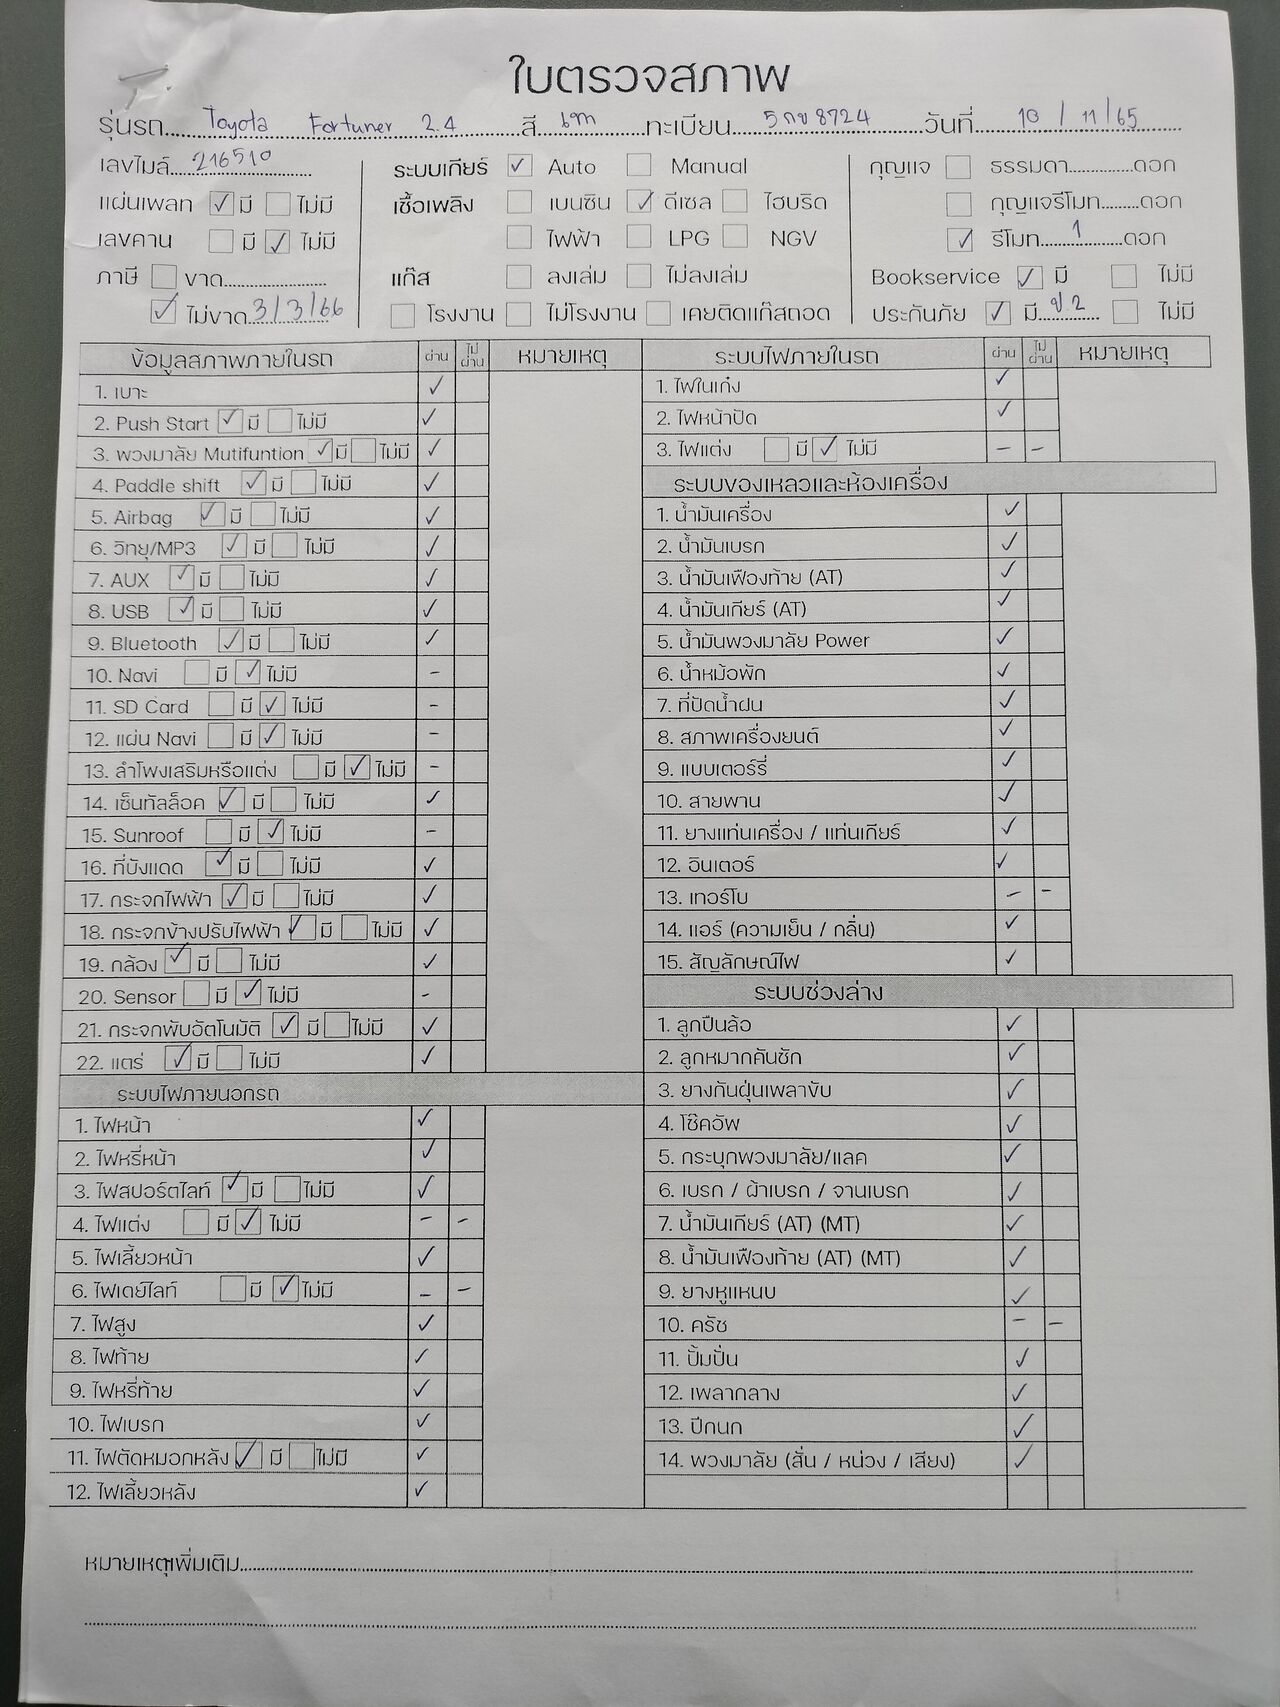 ใบตรวจสภาพ
รุ่นรถ Toyota Fortuner 2.4 สี เทา ทะเบียน 5กข8724 วันที่ 10/11/65
เลขไมล์ 216510 ระบบเกียร์ ☑ Auto ☐ Manual กุญแจ ☐ ธรรมดา ดอก
แผ่นเพลท ☑ มี ☐ ไม่มี เชื้อเพลิง ☐ เบนซิน ☑ ดีเซล ☐ ไฮบริด ☐ กุญแจรีโมท ดอก
เลขคาน ☐ มี ☑ ไม่มี ☐ ไฟฟ้า ☐ LPG ☐ NGV ☑ รีโมท 1 ดอก
ภาษี ☐ ขาด แก๊ส ☐ ลงเล่ม ☐ ไม่ลงเล่ม Bookservice ☑ มี ☐ ไม่มี
☑ ไม่ขาด 3/3/66 ☐ โรงงาน ☐ ไม่โรงงาน ☐ เคยติดแก๊สถอด ประกันภัย ☑ มี ป.2 ☐ ไม่มี
ข้อมูลสภาพภายในรถ ผ่าน ไม่ผ่าน หมายเหตุ
1. เบาะ ✓
2. Push Start ☑ มี ☐ ไม่มี ✓
3. พวงมาลัย Mutifuntion ☑ มี ☐ ไม่มี ✓
4. Paddle shift ☑ มี ☐ ไม่มี ✓
5. Airbag ☑ มี ☐ ไม่มี ✓
6. วิทยุ/MP3 ☑ มี ☐ ไม่มี ✓
7. AUX ☑ มี ☐ ไม่มี ✓
8. USB ☑ มี ☐ ไม่มี ✓
9. Bluetooth ☑ มี ☐ ไม่มี ✓
10. Navi ☐ มี ☑ ไม่มี -
11. SD Card ☐ มี ☑ ไม่มี -
12. แผ่น Navi ☐ มี ☑ ไม่มี -
13. ลำโพงเสริมหรือแต่ง ☐ มี ☑ ไม่มี -
14. เซ็นทัลล็อค ☑ มี ☐ ไม่มี ✓
15. Sunroof ☐ มี ☑ ไม่มี -
16. ที่บังแดด ☑ มี ☐ ไม่มี ✓
17. กระจกไฟฟ้า ☑ มี ☐ ไม่มี ✓
18. กระจกข้างปรับไฟฟ้า ☑ มี ☐ ไม่มี ✓
19. กล้อง ☑ มี ☐ ไม่มี ✓
20. Sensor ☐ มี ☑ ไม่มี -
21. กระจกพับอัตโนมัติ ☑ มี ☐ ไม่มี ✓
22. แตร่ ☑ มี ☐ ไม่มี ✓
ระบบไฟภายนอกรถ
1. ไฟหน้า ✓
2. ไฟหรี่หน้า ✓
3. ไฟสปอร์ตไลท์ ☑ มี ☐ ไม่มี ✓
4. ไฟแต่ง ☐ มี ☑ ไม่มี - -
5. ไฟเลี้ยวหน้า ✓
6. ไฟเดย์ไลท์ ☐ มี ☑ ไม่มี - -
7. ไฟสูง ✓
8. ไฟท้าย ✓
9. ไฟหรี่ท้าย ✓
10. ไฟเบรก ✓
11. ไฟตัดหมอกหลัง ☑ มี ☐ ไม่มี ✓
12. ไฟเลี้ยวหลัง ✓
ระบบไฟภายในรถ ผ่าน ไม่ผ่าน หมายเหตุ
1. ไฟในเก๋ง ✓
2. ไฟหน้าปัด ✓
3. ไฟแต่ง ☐ มี ☑ ไม่มี - -
ระบบของเหลวและห้องเครื่อง
1. น้ำมันเครื่อง ✓
2. น้ำมันเบรก ✓
3. น้ำมันเฟืองท้าย (AT) ✓
4. น้ำมันเกียร์ (AT) ✓
5. น้ำมันพวงมาลัย Power ✓
6. น้ำหม้อพัก ✓
7. ที่ปัดน้ำฝน ✓
8. สภาพเครื่องยนต์ ✓
9. แบบเตอร์รี่ ✓
10. สายพาน ✓
11. ยางแท่นเครื่อง / แท่นเกียร์ ✓
12. อินเตอร์ ✓
13. เทอร์โบ - -
14. แอร์ (ความเย็น / กลิ่น) ✓
15. สัญลักษณ์ไฟ ✓
ระบบช่วงล่าง
1. ลูกปืนล้อ ✓
2. ลูกหมากคันชัก ✓
3. ยางกันฝุ่นเพลาขับ ✓
4. โช๊คอัพ ✓
5. กระบุกพวงมาลัย/แลค ✓
6. เบรก / ผ้าเบรก / จานเบรก ✓
7. น้ำมันเกียร์ (AT) (MT) ✓
8. น้ำมันเฟืองท้าย (AT) (MT) ✓
9. ยางหูแหนบ ✓
10. ครัช - -
11. ปั้มปั่น ✓
12. เพลากลาง ✓
13. ปีกนก ✓
14. พวงมาลัย (สั่น / หน่วง / เสียง) ✓
หมายเหตุเพิ่มเติม